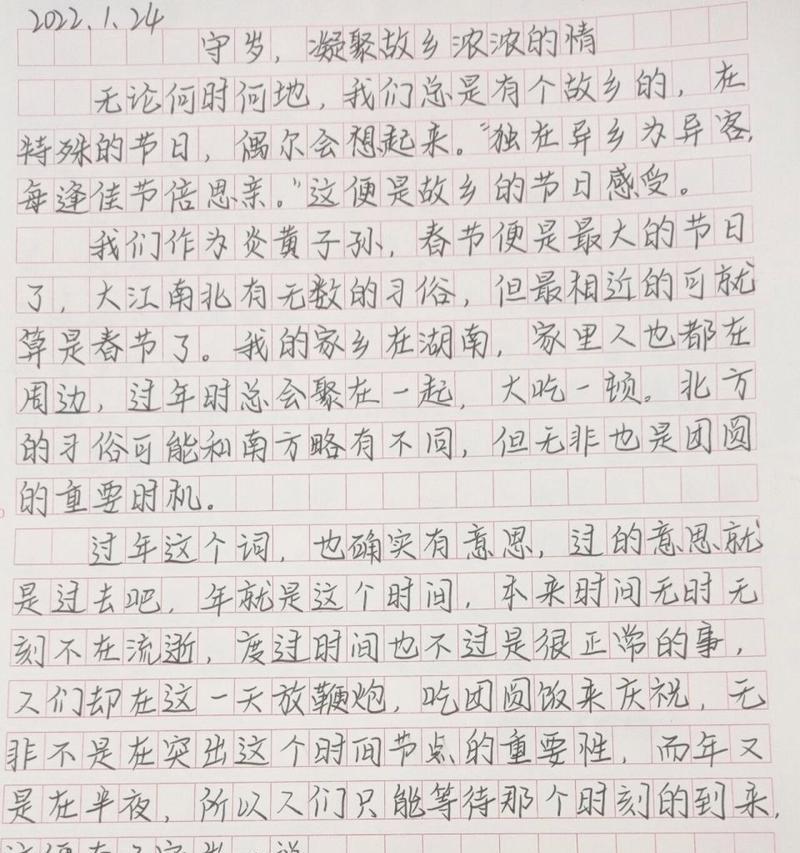 2022.1.24
守岁，凝聚故乡浓浓的情
无论何时何地，我们总是有个故乡的，在
特殊的节日，偶尔会想起来。"独在异乡为异客，
每逢佳节倍思亲。"这便是故乡的节日感受。
我们作为炎黄子孙，春节便是最大的节日
了，大江南北有无数的习俗，但最相近的可就
算是春节了。我的家乡在湖南，家里人也都在
周边，过年时总会聚在一起，大吃一顿。北方
的习俗可能和南方略有不同，但无非也是团圆
的重要时机。
过年这个词，也确实有意思，过的意思就
是过去吧，年就是这个时间，本来时间无时无
刻不在流逝，度过时间也不过是很正常的事，
人们却在这一天放鞭炮，吃团圆饭来庆祝，无
非不是在突出这个时间节点的重要性，而年又
是在半夜，所以人们只能等待那个时刻的到来，